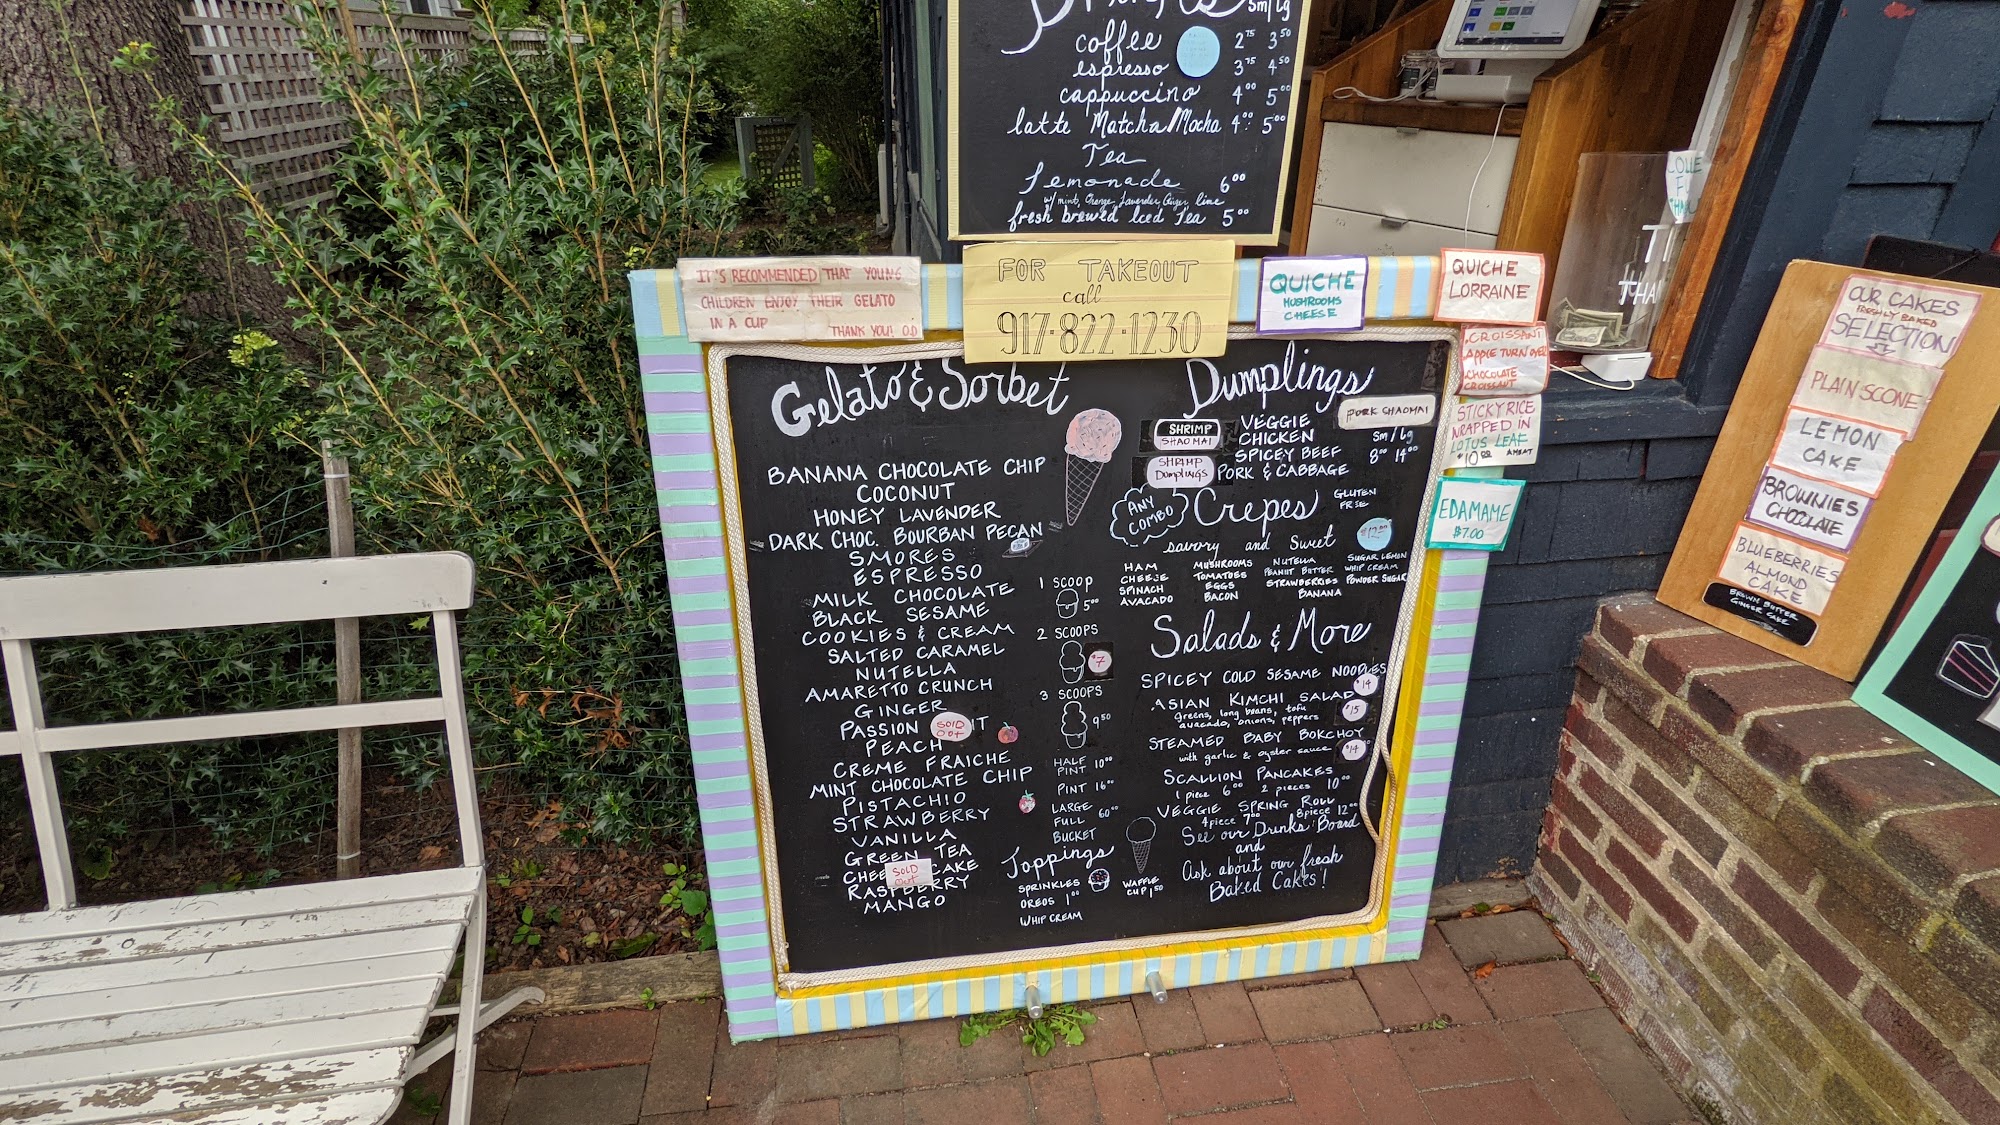 Sm/Lg
coffee 2.75 3.50
espresso 3.75 4.50
cappuccino 4.00 5.00
latte Matcha/Mocha 4.00 5.00
Tea
Lemonade 6.00
w/ mint, Orange, Lavender, Ginger, lime
fresh brewed Iced Tea 5.00
IT'S RECOMMENDED THAT YOUNG
CHILDREN ENJOY THEIR GELATO
IN A CUP
THANK YOU! O.D
FOR TAKEOUT
call
917·822·1230
QUICHE
MUSHROOMS
CHEESE
QUICHE
LORRAINE
CROISSANT
APPLE TURN OVER
CHOCOLATE
CROISSANT
STICKY RICE
WRAPPED IN
LOTUS LEAF
$10.00 AMEAT
EDAMAME
$7.00
Gelato & Sorbet
BANANA CHOCOLATE CHIP
COCONUT
HONEY LAVENDER
DARK CHOC. BOURBAN PECAN
SMORES
ESPRESSO
MILK CHOCOLATE
BLACK SESAME
COOKIES & CREAM
SALTED CARAMEL
NUTELLA
AMARETTO CRUNCH
GINGER
PASSION SOLD OUT IT
PEACH
CREME FRAICHE
MINT CHOCOLATE CHIP
PISTACHIO
STRAWBERRY
VANILLA
GREEN TEA
CHEE SOLD OUT CAKE
RASPBERRY
MANGO
1 SCOOP
5.00
2 SCOOPS
$7
3 SCOOPS
9.50
HALF
PINT 10.00
PINT 16.00
LARGE
FULL 60.00
BUCKET
Toppings
SPRINKLES
OREOS 1.00
WHIP CREAM
WAFFLE
CUP 1.50
Dumplings
SHRIMP
SHAOMAI
SHRIMP
DUMPLINGS
VEGGIE
CHICKEN
SPICEY BEEF
PORK & CABBAGE
PORK SHAOMAI
Sm/Lg
8.00 14.00
ANY
COMBO
Crepes
GLUTEN
FREE
$12.00
savory and Sweet
HAM
CHEESE
SPINACH
AVACADO
MUSHROOMS
TOMATOES
EGGS
BACON
NUTELLA
PEANUT BUTTER
STRAWBERRIES
BANANA
SUGAR LEMON
WHIP CREAM
POWDER SUGAR
Salads & More
SPICEY COLD SESAME NOODLES
$14
ASIAN KIMCHI SALAD
greens, long beans, tofu
avacado, onions, peppers
$15
STEAMED BABY BOKCHOY
with garlic & oyster sauce $14
SCALLION PANCAKES
1 piece 6.00 2 pieces 10.00
VEGGIE SPRING ROLL
4 piece 7.00 8 piece 12.00
See our Drinks Board
and
Ask about our fresh
Baked Cakes!
OUR CAKES
FRESHLY BAKED
SELECTION
PLAIN SCONE
LEMON
CAKE
BROWNIES
CHOCOLATE
BLUEBERRIES
ALMOND
CAKE
BROWN BUTTER
GINGER CAKE